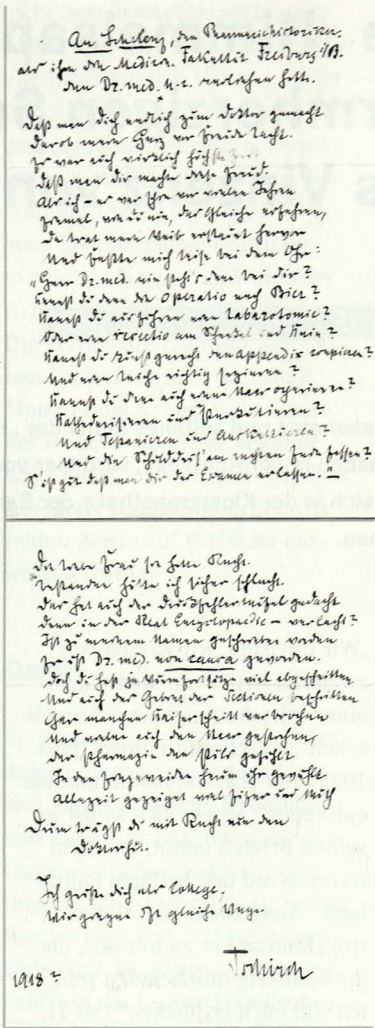 An Schelenz, den Pharmaciehistoriker,
als ihm die Medicin. Fakultät Freiburg i/B.
den Dr. med. h. c. verliehen hatte.
Daß man dich endlich zum Doktor gemacht
Darob mein Herz vor Freude lacht.
Es war auch wirklich höchste Zeit
Daß man dir machte diese Freud.
Als ich – es war schon vor vielen Jahren
Einmal, wie du nun, das Gleiche erfahren,
Da trat mein Weib erstaunt hervor
Und faßte mich leise bei dem Ohr:
„Herr Dr. med. wie steht's denn bei dir?
Kennst du denn die Operatio nach Bier?
Kannst du ausführen eine Laparotomie?
Oder eine resectio am Schenkel und Knie?
Kannst du kunstgerecht den Appendix
Und eine Leiche richtig sezieren?
Kannst du denn auch eine Niere operieren?
Kathederisieren und
Und Trepanieren und Auskultieren?
Und die Schilddrüs' am rechten Ende fassen?
S'ist gut daß man dir das Examen erlassen."
Die liebe Frau sie hatte Recht.
Bestanden hätte ich sicher schlecht.
Das hat auch der Druckfehlerteufel gedacht
Denn in der Real Encyclopaedie – wer lacht?
Ist zu meinem Namen geschrieben worden
Er ist Dr. med. non causa geworden.
Doch du hast ja
Und auch das Gebiet der beschritten
Gar manchen Kaiserschnitt verbrochen
Und vielen auch den Staar gestochen,
Der Pharmazie den Puls gefühlt
In den Eingeweiden herum ihr gewühlt
Allezeit gezeiget viel Eifer und Muth
Drum trägst du mit Recht nun den
Doktorhut.
Ich grüße dich als College.
Wir gingen oft gleiche Wege.
Tschirch
1918?